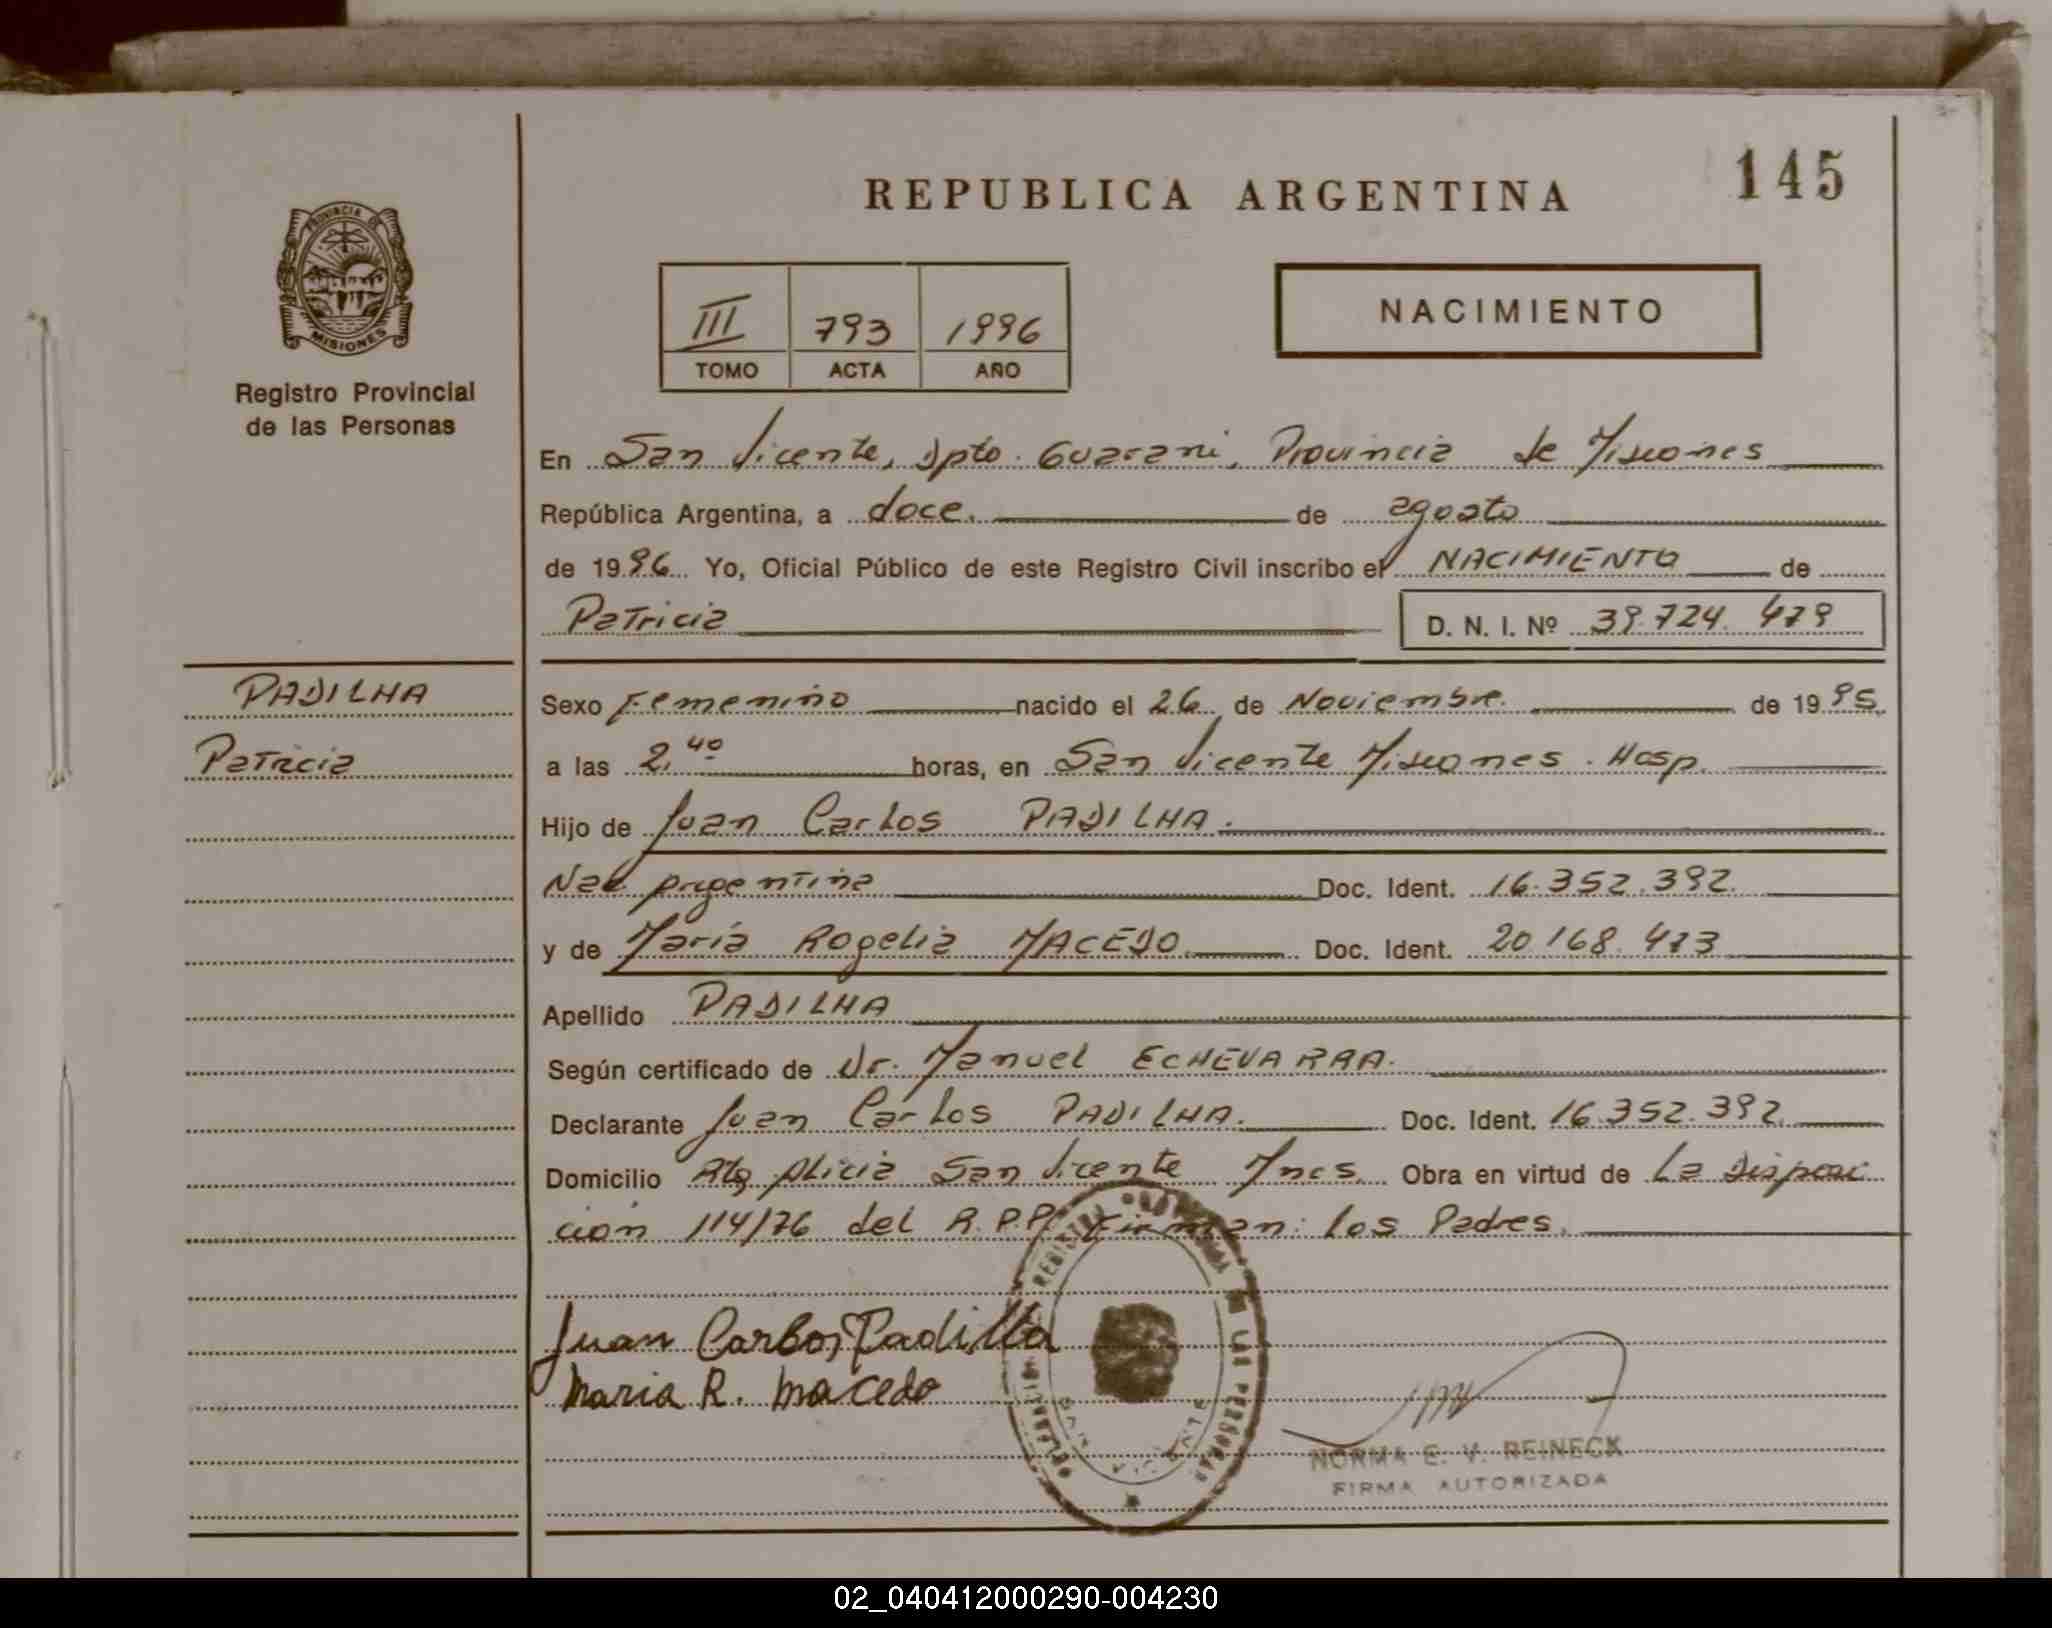 REPUBLICA ARGENTINA
145
PROVINCIA DE
MISIONES
Registro Provincial
de las Personas
III 793 1996
TOMO ACTA AÑO
NACIMIENTO
En San Vicente, Dpto. Guarani, Provincia de Misiones
República Argentina, a doce. de agosto
de 1996 Yo, Oficial Público de este Registro Civil inscribo el NACIMIENTO de
Patricia D. N. I. Nº 39.724.479
PADILHA
Patricia
Sexo Femenino nacido el 26 de Noviembre. de 1995
a las 2.40 horas, en San Vicente Misiones. Hosp.
Hijo de Juan Carlos PADILHA.
Nac argentina Doc. Ident. 16.352.392.
y de María Rogelia MACEDO. Doc. Ident. 20 168.473
Apellido PADILHA
Según certificado de Dr. Manuel ECHEVARRA.
Declarante Juan Carlos PADILHA. Doc. Ident. 16.352.392.
Domicilio Alicia San Vicente Mnes. Obra en virtud de La Disposi
ción 114/76 del R.P.P. Firman: los Padres.
Juan Carlos Padilha
Maria R. Macedo
REGISTRO DE LAS PERSONAS
NORMA E. V. REINECK
FIRMA AUTORIZADA
02_040412000290-004230